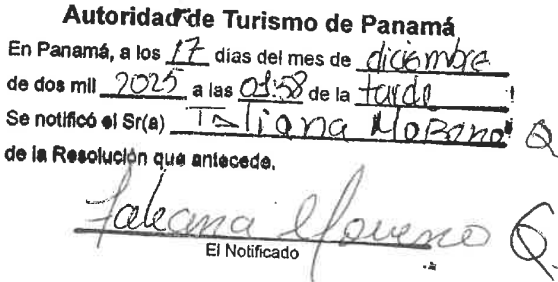 Autoridad de Turismo de Panamá
En Panamá, a los 17 días del mes de diciembre
de dos mil 2025 a las 01:58 de la tarde
Se notificó el Sr(a) Taliana Moreno Q
de la Resolución que antecede.
Taleana Moreno Q.
El Notificado